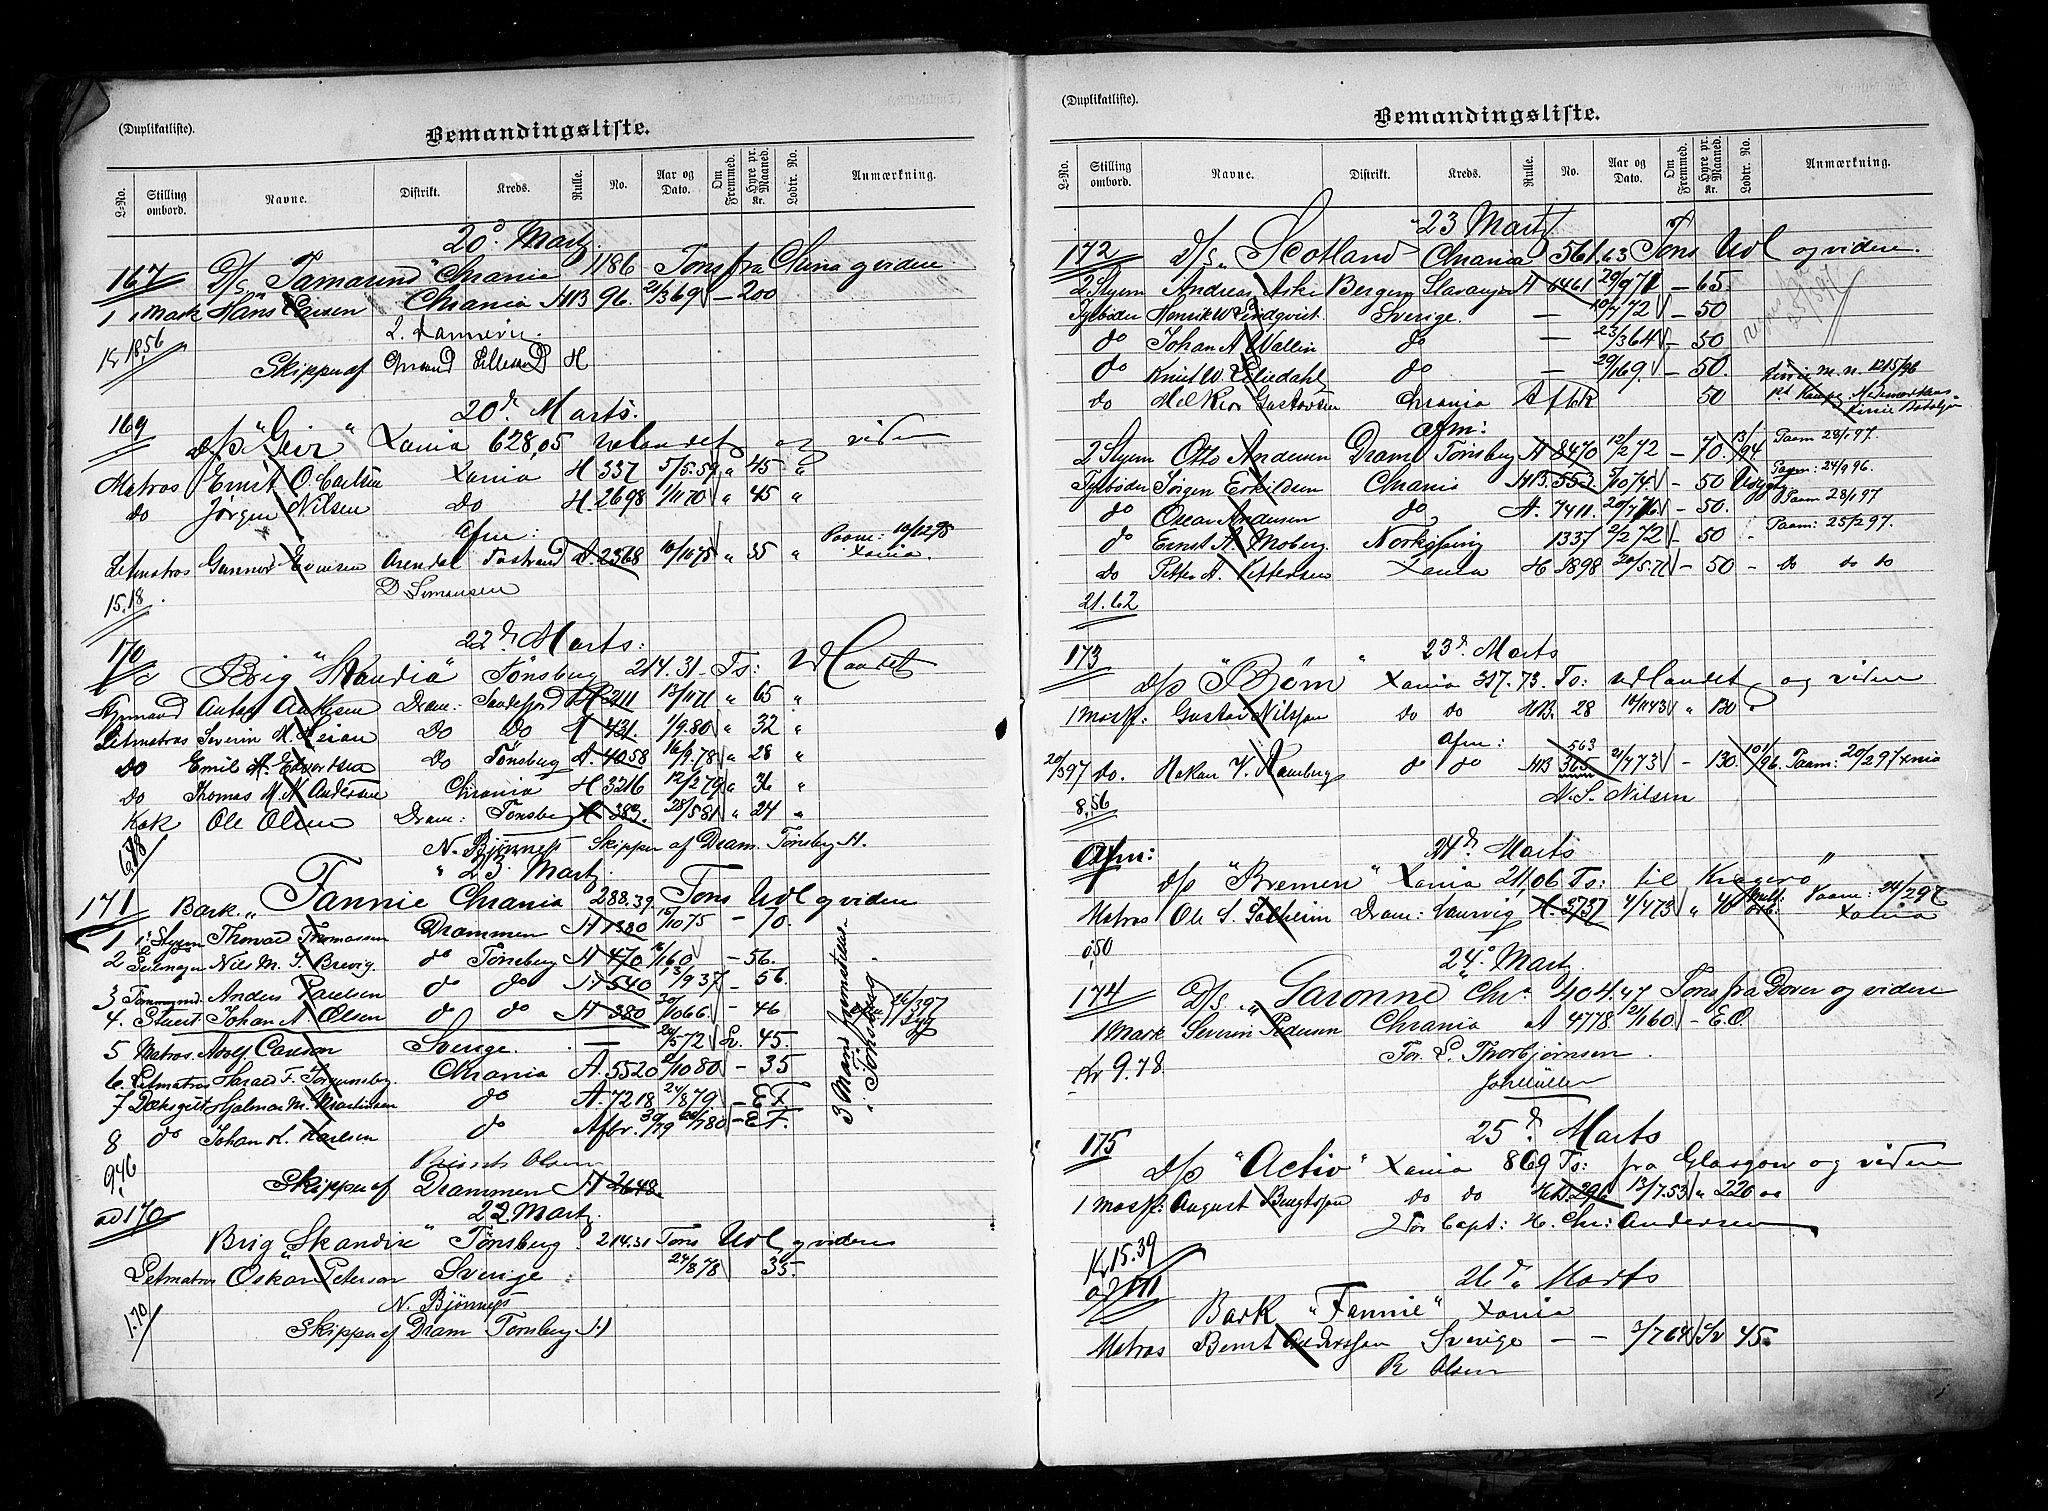 (Duplikatliste).
Bemandingsliste.
L-No. Stilling ombord. Navne. Distrikt. Kreds. Rulle. No. Aar og Dato. Om Fremmed. Hyre pr. Maaned. Kr. Lodtr. No. Anmærkning.
20d Martz.
167 D/s „Tamarind" Chrania 1186 Tons fra China og videre
1 1 Mask Hans Larsen Chrania HB 96. 21/3 69 – 200
Kr 18,56
Skipper af H
169 20de Marts.
d/s "Geir" Xania 628,05 udlandet og viden
Matros Ernst O. Carlsen Xania H. 337 5/5.59 " 45 "
do Jørgen Nilsen do H. 2698 1/11 70 " 45 "
Afm:
Letmatros Gunnar Evensen Arendal Tostrand A. 2368 10/10 75 " 35 " Paam: 10/12 95 Xania.
D Simonsen
15,18.
170 22de Marts:
Brig "Skandia" Tønsberg 214.31 Ts: Udlandet
Styrmand Anton Dram: Sandefjord H 2111 13/11 71 " 65 "
Letmatros Severin M. do do A 431. 1/9.80 " 32 "
do Emil H. Edvardsen do Tønsberg A. 4058 16/9.78 " 28 "
do Thomas M. N. Andersen Chrania H 3216 12/2 79 " 36 "
Kok Ole Olsen Dram: Tønsberg A 383. 28/5 81 " 24 "
6,78
N. Bjønness Skipper af Dram. Tønsberg H.
" 23 Martz.
171 Bark „Fannie Chrania 288.39 Tons Udl og videre
1 1. Styrm Thorvald Thomassen Drammen A 1380 15/10 75 – 70.
2 Seilmager Nils M. S. Brevig. do Tønsberg A 470 16/1 60 – 56.
3 Tømmermd. Anders Paulsen do do A 540 13/9 37 – 56.
4. Stuert. Johan A. Olsen do do A 380 30/10 66. – 46
5 Matros Adolf Carlson Sverige. – 20/5 72 Sv. 45.
6. Letmatros Harald F. Jørgensberg. Chrania A. 5520 2/10 80 – 35
7 Dæksgutt Hjalmar M. Martinsen do A. 7218 24/8 79 – E F
8 do Johan H. Karlsen do Afbr. 30/79 20/7 80 – E F.
3 Mand fremstillet i Tønsberg 26/3 97
9,46
Olsen
Skipper af Drammen A 2648.
ad 170 22 Martz.
Brig „Skandia" Tønsberg 214.31 Tons Udl og videre
Letmatros Oskar Peterson Sverige 24/8 78 35.
N. Bjønness
1.70 Skipper af Dram Tønsberg H
(Duplikatliste).
Bemandingsliste.
L-No. Stilling ombord. Navne. Distrikt. Kreds. Rulle. No. Aar og Dato. Om Fremmed. Hyre pr. Maaned. Kr. Lodtr. No. Anmærkning.
23 Martz
172 D/s „Scotland Chrania 561.63 Tons Udl og videre.
2 Styrm Andreas Aske Bergen Stavanger A 6461 29/9 71 – 65.
Fyrbøder Henrik W. Lindqvist. Sverige. – 10/7 72 – 50
do Johan A Wallin do – 23/3 64 – 50
do Knut W. Liliedahl do – 29/1 69. – 50.
do Melkior Gustavsen Chrania Afbk 50
Afm:
2 Styrm Otto Andersen Dram Tønsberg A 8470 12/2 72 – 70. 13/94 Paam 28/1 97.
Fyrbøder Jørgen Eskildsen Chrania HB 553 5/10 74 – 50 Paam: 24/9 96.
do Oscar Andersen do A. 7411. 20/7 76 – 50. Paam 28/1 97
do Ernst A. Moberg. Norkøping 1337 2/2 72 – 50 - Paam: 25/2 97.
do Petter A. Pettersen Xania H 3898 20/5.71 – 50 - do do do
21.62
173 23de Marts
d/s "Bjørn" Xania 357.73. Ts: udlandet og viden
1 mask: Gustav Nilsson do do HB. 28 10/11 43 " 130 "
Afm:
20/3 97 do. Hakan V. Ramberg do do HB 365 563 21/4 73 – 130. 101/96. Paam: 20/2 97 Xnia
8,56 N. S. Nilsen
Afm: 24de Marts
d/s "Bremen" Xania 211,06 Ts: til Kragerø
Matros Ole S. Solheim Dram: Laurvig A. 3737 4/4 73 " 40 Paam: 24/2 97 Xania
0,50
24d Martz.
174 D/s „Garonne" Chra 404.47 Tons fra Dover og videre
1 Mask Severin Pedersen Chrania A 4778 12/1 60 – E.O.
For. L. Thorbjørnsen.
Kr 9.78. Joh Müller
175 25de Marts
d/s "Activ" Xania 869 Ts: fra Glasgow og viden
1 mask: August Bengtson do do HB. 296 13/7.53 " 220 00
For Capt: H. Chr: Andersen
Kr 15.39
ad 171 26de Marts
Bark "Fannie" Xania
Matros Bernt Anderssen Sverige – – 3/7 64 Sv 45.
R Olsen